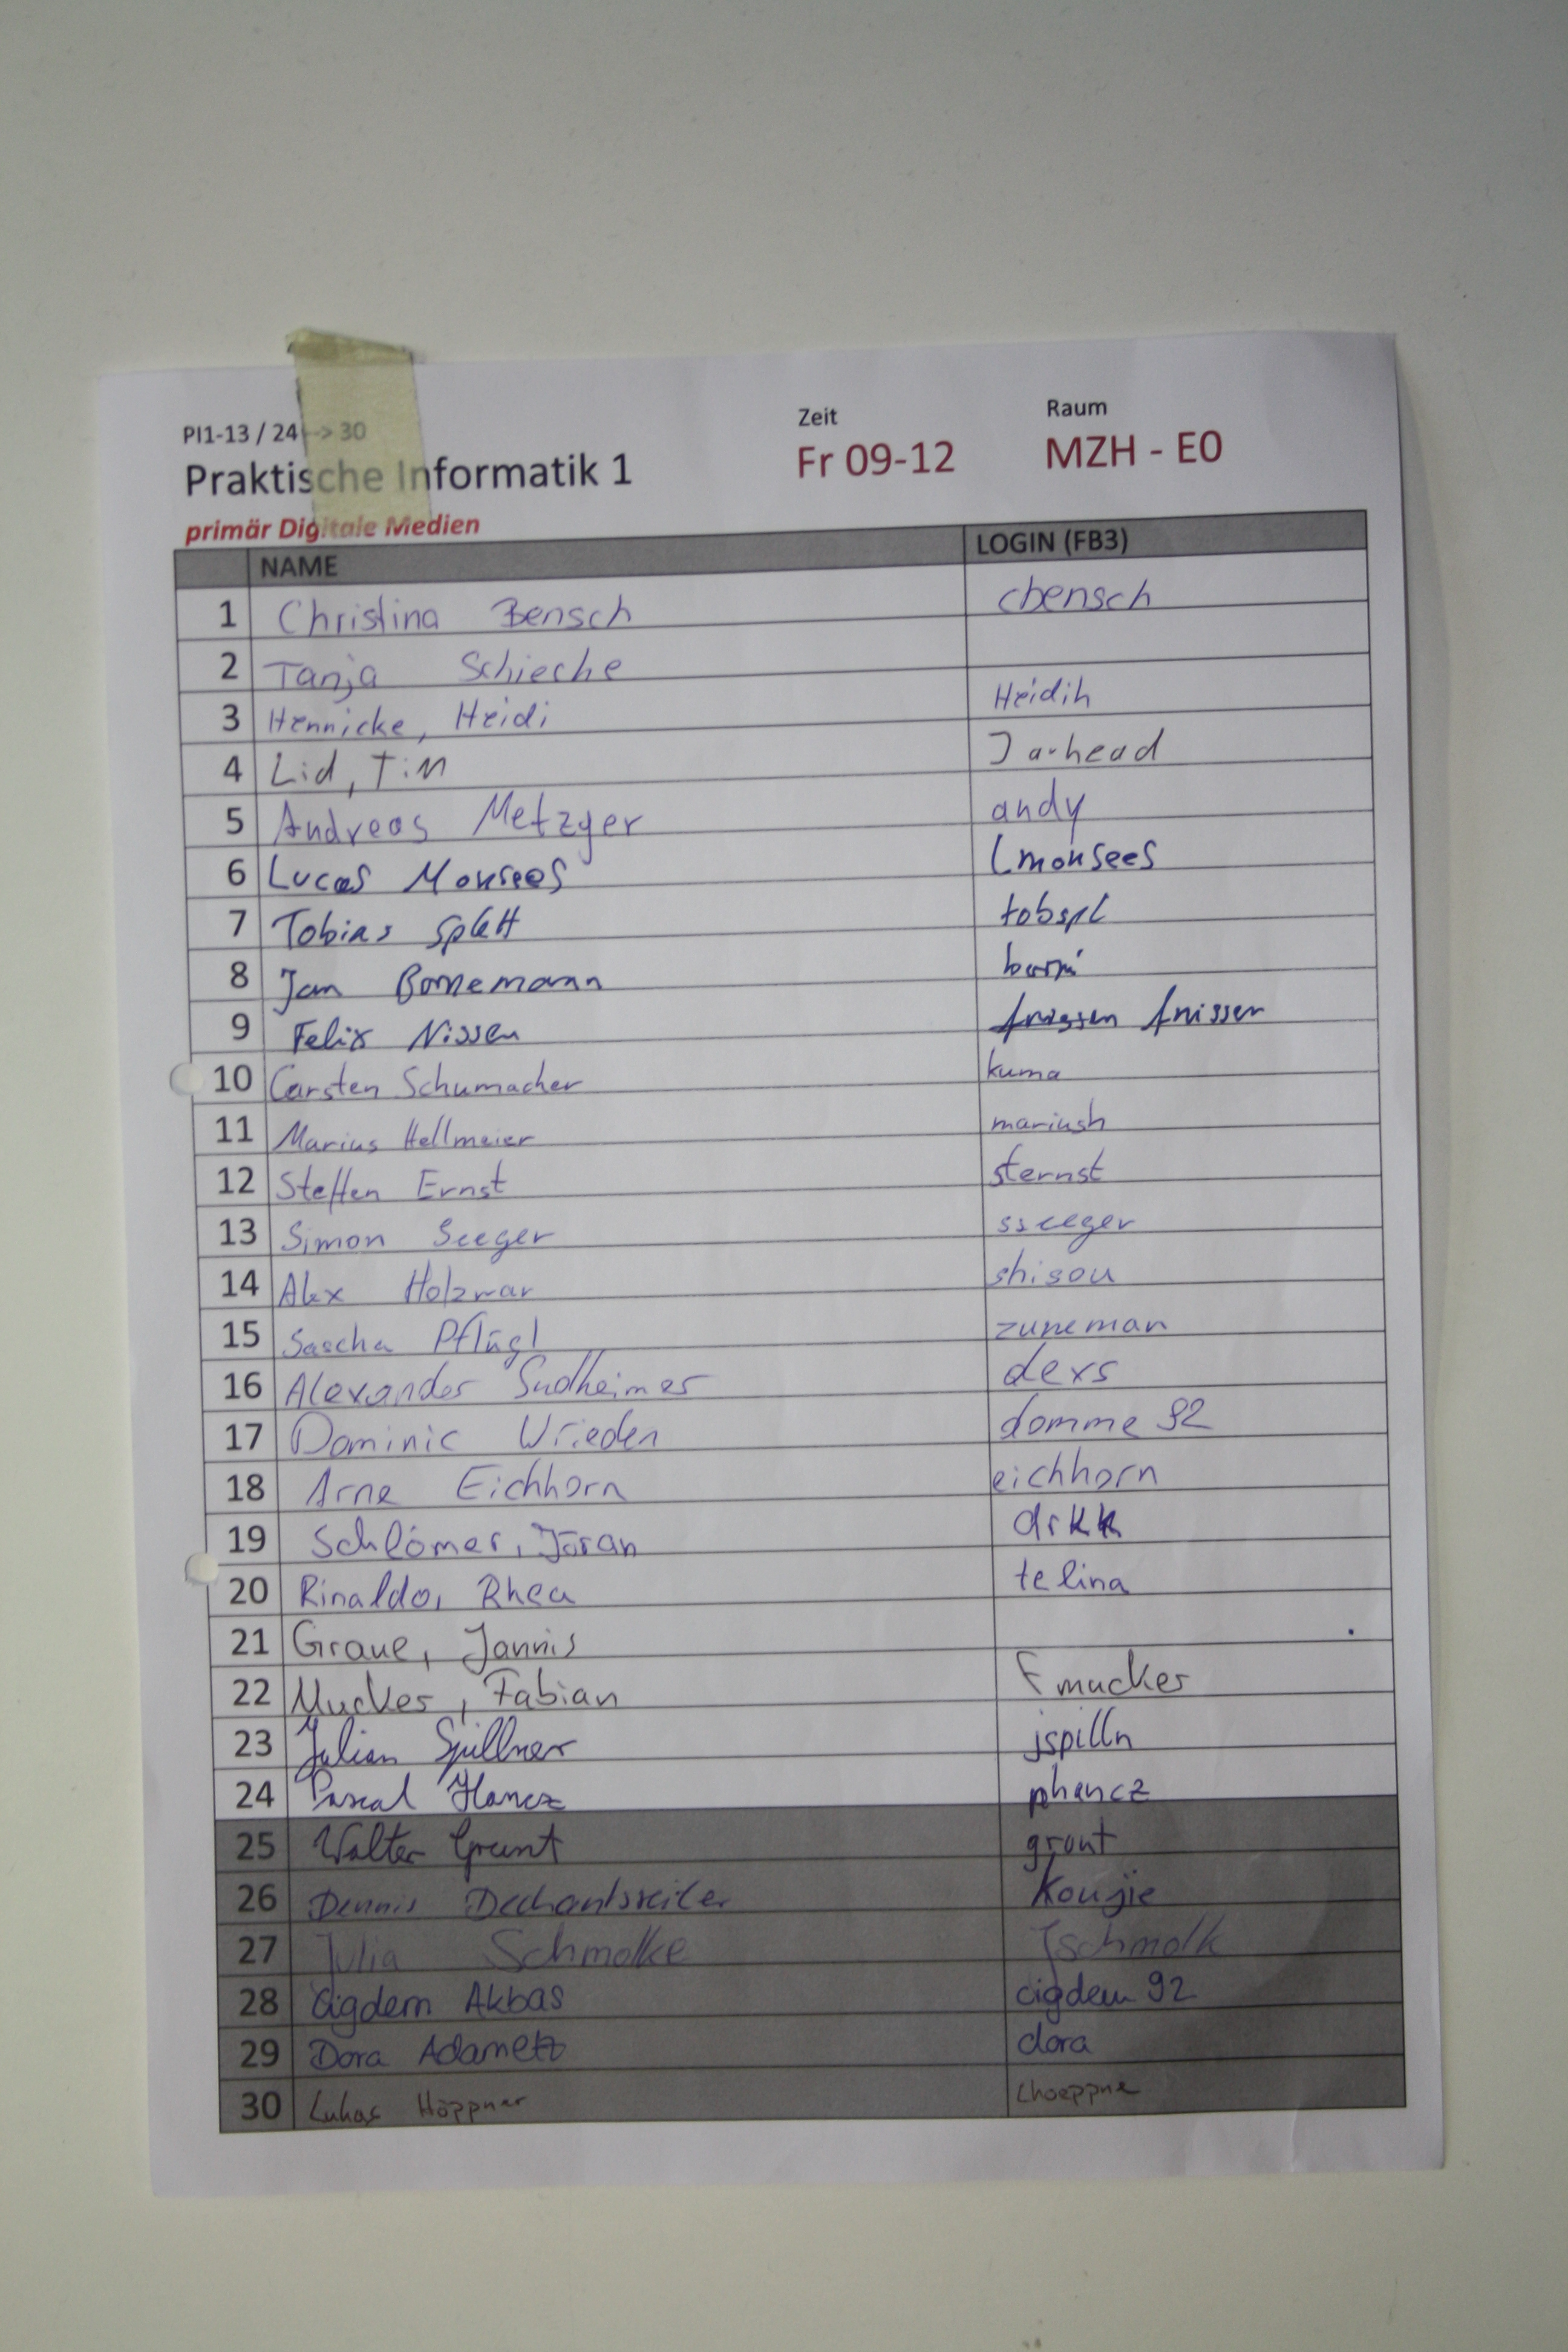 PI1-13 / 24 --> 30 Zeit Raum
Praktische Informatik 1 Fr 09-12 MZH - E0
primär Digitale Medien
NAME LOGIN (FB3)
1 Christina Bensch cbensch
2 Tanja Schieche
3 Hennicke, Heidi Heidih
4 Lid, Tim Jarhead
5 Andreas Metzger andy
6 Lucas Monsees lmonsees
7 Tobias Splett tobspl
8 Jan Bornemann
9 Felix Nissen fnissen fnissen
10 Carsten Schumacher kuma
11 Marius Hellmeier mariush
12 Steffen Ernst sternst
13 Simon Seeger sseeger
14 Alex Holzwar shisou
15 Sascha Pflügl zuneman
16 Alexander Sudheimer dexs
17 Dominic Wrieden domme92
18 Arne Eichhorn eichhorn
19 Schlömer, Jöran drkk
20 Rinaldo, Rhea telina
21 Graue, Jannis
22 Mucker, Fabian Fmucker
23 Julian Spillner jspilln
24 Pascal Hancz phancz
25 Walter Grunt
26 Dennis Dechantsreiter Koujie
27 Julia Schmolke Jschmolk
28 Cigdem Akbas cigdem92
29 Dora Adametz dora
30 Lukas Höppner Lhoeppne